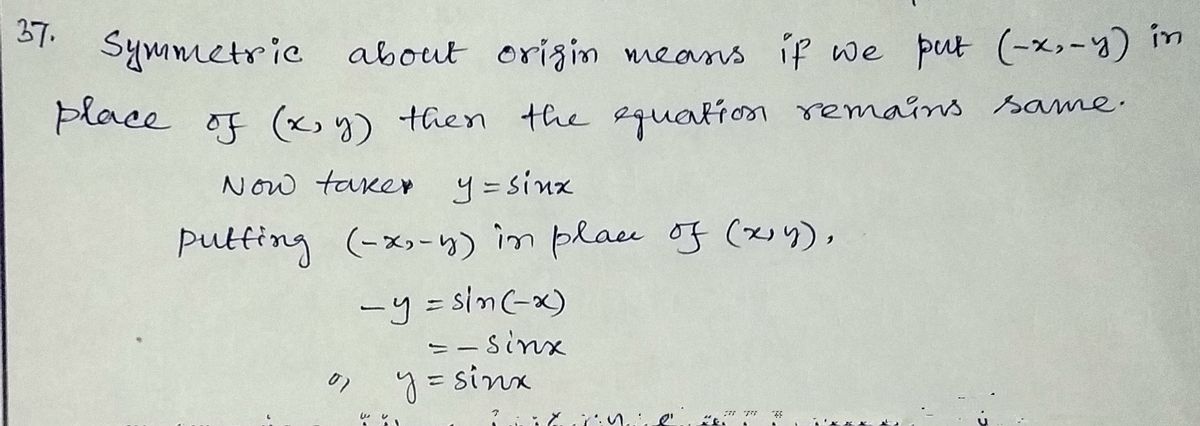 37. Symmetric about origin means if we put (-x,-y) in
place of (x,y) then the equation remains same.
Now taken y = sinx
putting (-x,-y) in place of (x,y),
-y = sin(-x)
= - sinx
or, y = sinx